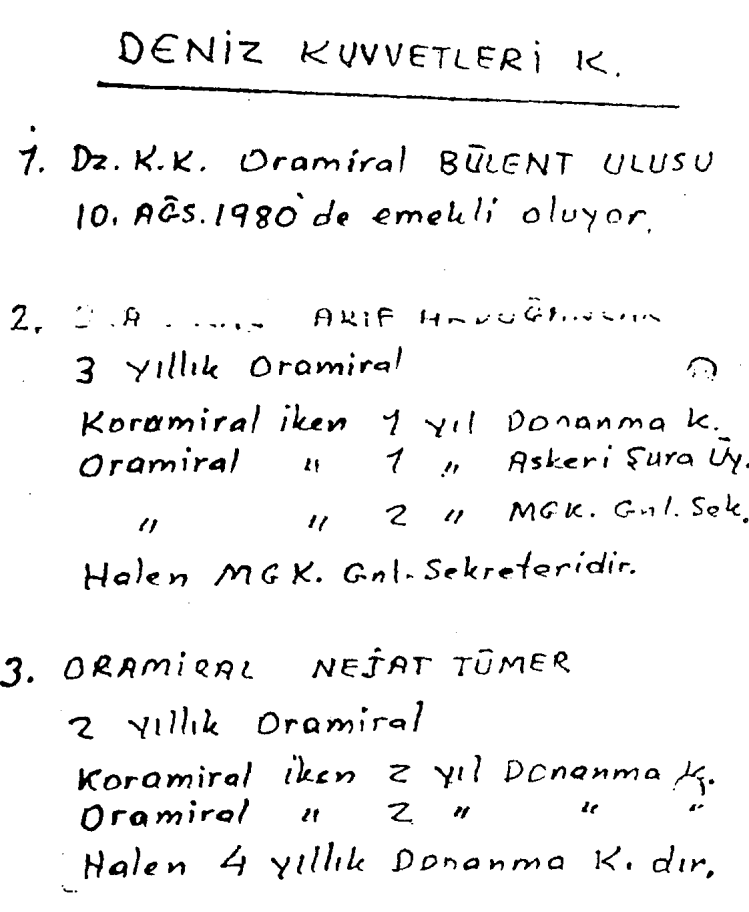 DENİZ KUVVETLERİ K.
1. Dz. K.K. Oramiral BÜLENT ULUSU
10. AĞS. 1980'de emekli oluyor.
2. AKİF
3 yıllık Oramiral
Koramiral iken 1 yıl Donanma K.
Oramiral " 1 " Askeri Şura Üy.
" " 2 " MGK. Gnl. Sek.
Halen MGK. Gnl. Sekreteridir.
3. ORAMİRAL NEJAT TÜMER
2 yıllık Oramiral
Koramiral iken 2 yıl Donanma K.
Oramiral " 2 " " "
Halen 4 yıllık Donanma K. dır.